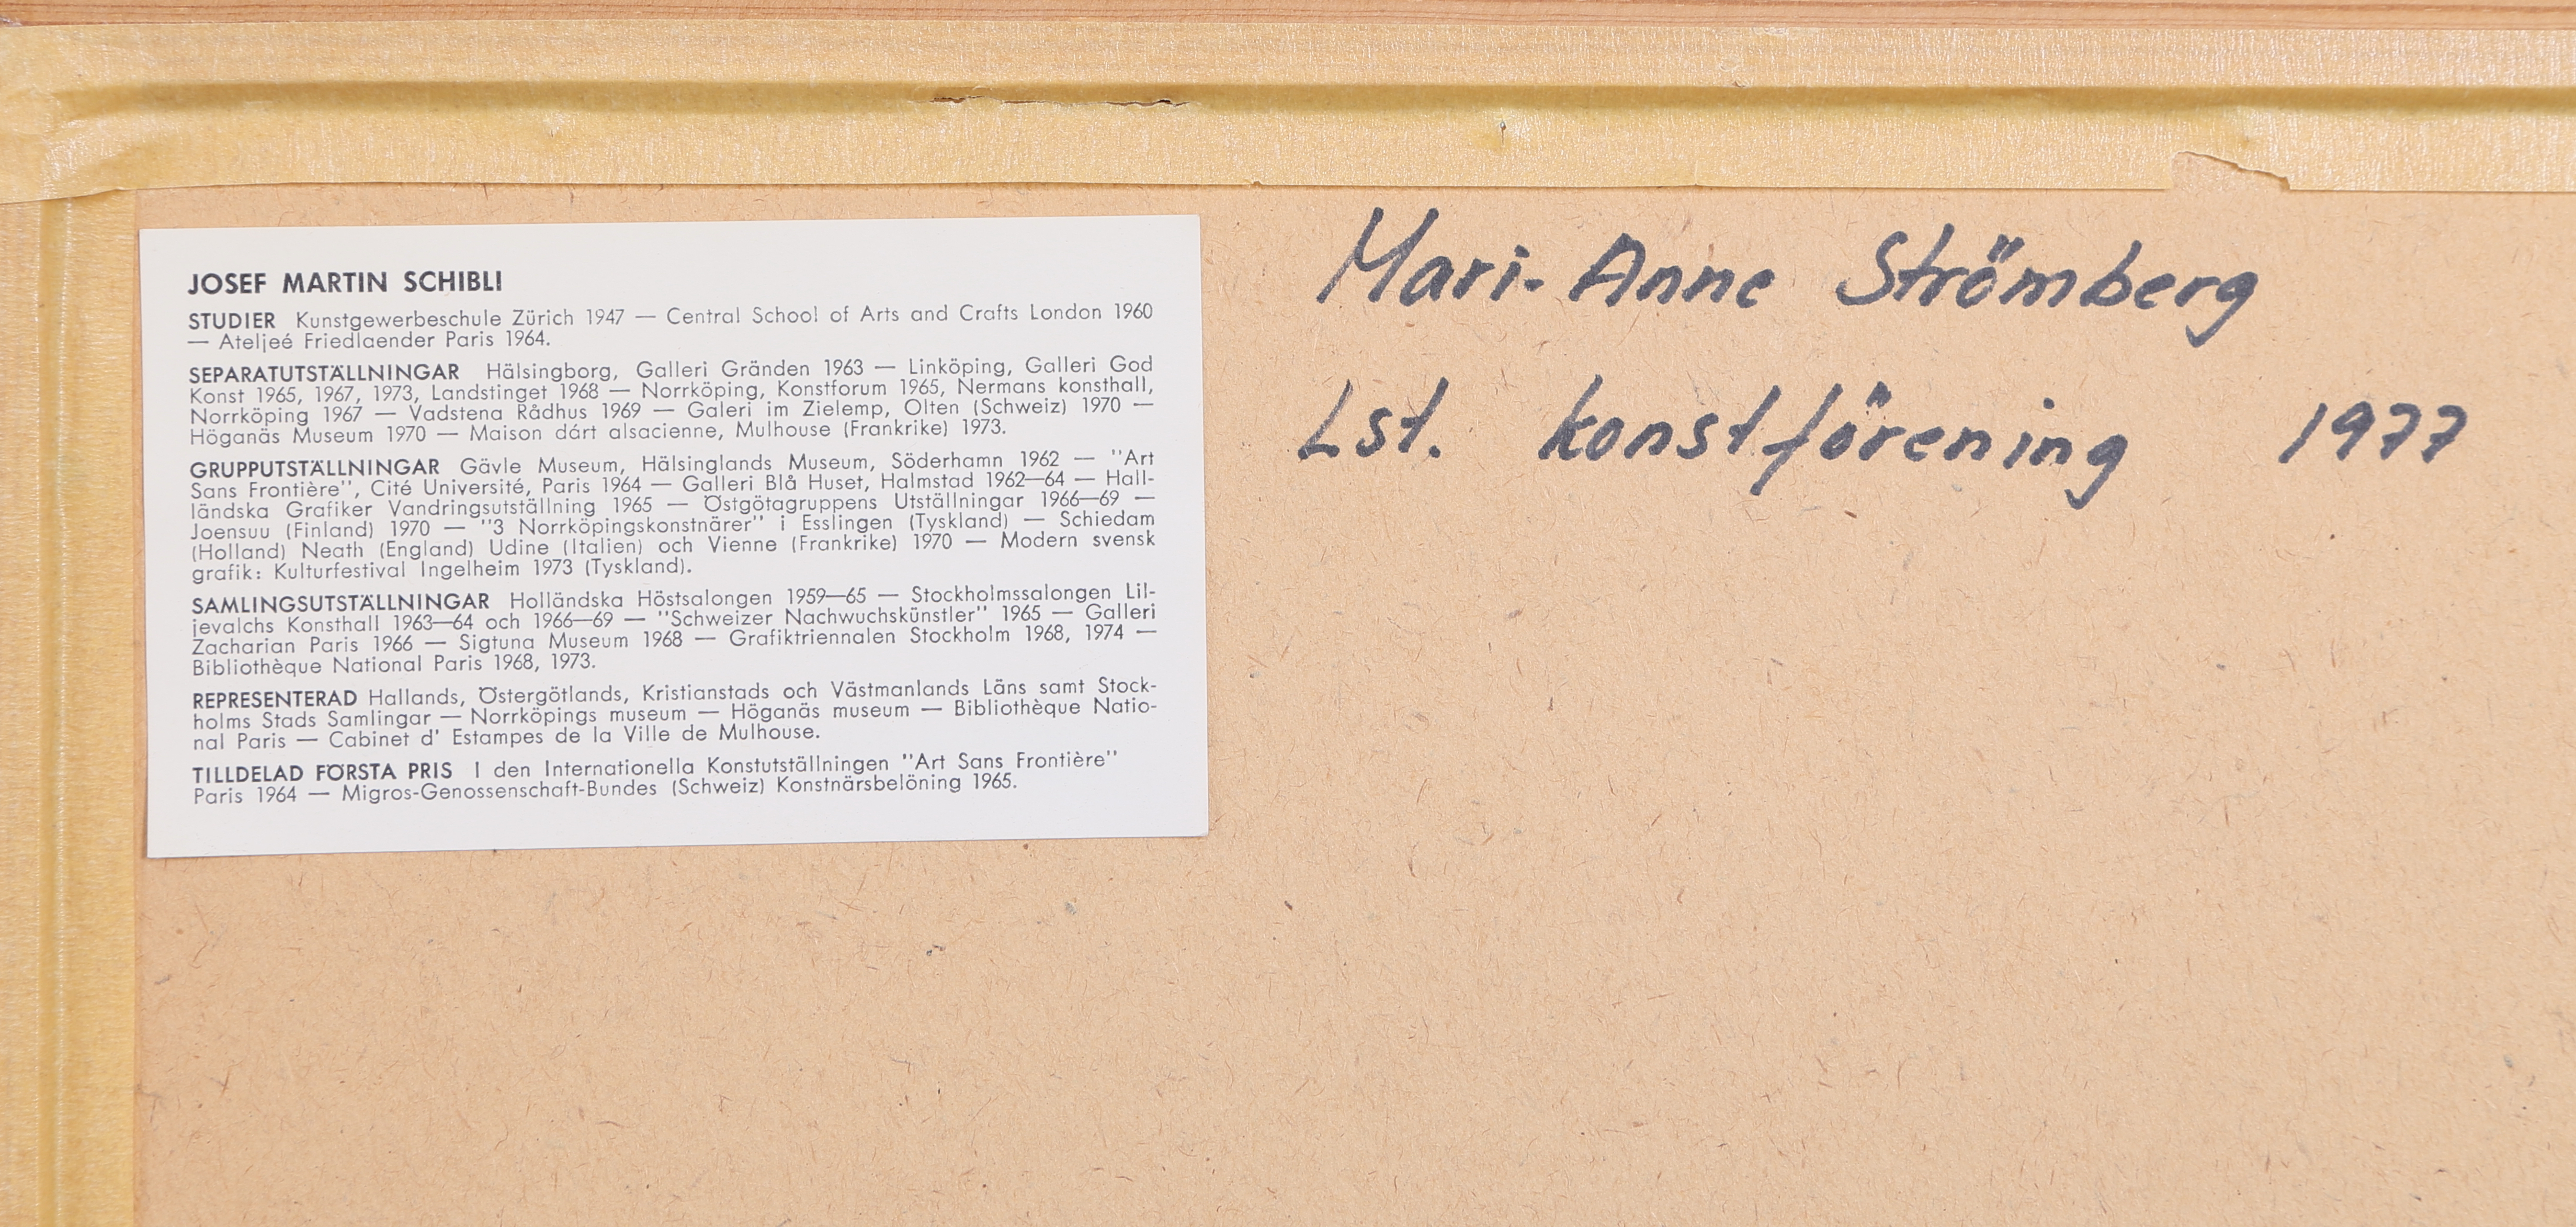 JOSEF MARTIN SCHIBLI
STUDIER Kunstgewerbeschule Zürich 1947 — Central School of Arts and Crafts London 1960
— Ateljeé Friedlaender Paris 1964.
SEPARATUTSTÄLLNINGAR Hälsingborg, Galleri Gränden 1963 — Linköping, Galleri God
Konst 1965, 1967, 1973, Landstinget 1968 — Norrköping, Konstforum 1965, Nermans konsthall,
Norrköping 1967 — Vadstena Rådhus 1969 — Galeri im Zielemp, Olten (Schweiz) 1970 —
Höganäs Museum 1970 — Maison dárt alsacienne, Mulhouse (Frankrike) 1973.
GRUPPUTSTÄLLNINGAR Gävle Museum, Hälsinglands Museum, Söderhamn 1962 — "Art
Sans Frontière", Cité Université, Paris 1964 — Galleri Blå Huset, Halmstad 1962—64 — Hall-
ländska Grafiker Vandringsutställning 1965 — Östgötagruppens Utställningar 1966—69 —
Joensuu (Finland) 1970 — "3 Norrköpingskonstnärer" i Esslingen (Tyskland) — Schiedam
(Holland) Neath (England) Udine (Italien) och Vienne (Frankrike) 1970 — Modern svensk
grafik: Kulturfestival Ingelheim 1973 (Tyskland).
SAMLINGSUTSTÄLLNINGAR Holländska Höstsalongen 1959—65 — Stockholmssalongen Lil-
jevalchs Konsthall 1963—64 och 1966—69 — "Schweizer Nachwuchskünstler" 1965 — Galleri
Zacharian Paris 1966 — Sigtuna Museum 1968 — Grafiktriennalen Stockholm 1968, 1974 —
Bibliothèque National Paris 1968, 1973.
REPRESENTERAD Hallands, Östergötlands, Kristianstads och Västmanlands Läns samt Stock-
holms Stads Samlingar — Norrköpings museum — Höganäs museum — Bibliothèque Natio-
nal Paris — Cabinet d' Estampes de la Ville de Mulhouse.
TILLDELAD FÖRSTA PRIS I den Internationella Konstutställningen "Art Sans Frontière"
Paris 1964 — Migros-Genossenschaft-Bundes (Schweiz) Konstnärsbelöning 1965.
Mari-Anne Strömberg
Lst. konstförening 1977